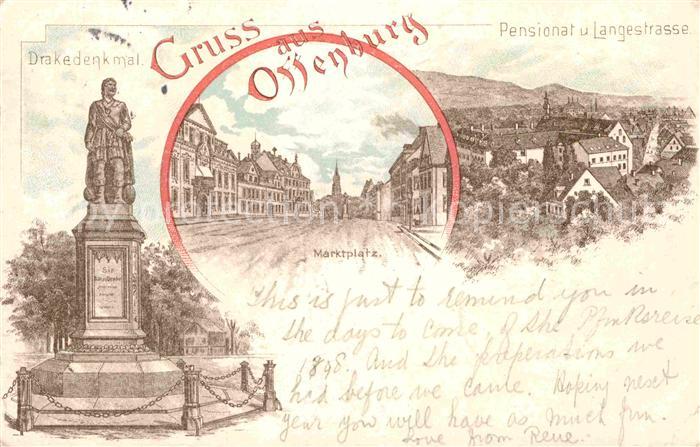 Gruss aus
Offenburg
Drakedenkmal.
Pensionat u Langestrasse.
Marktplatz.
Sir
This is just to remind you in
the days to come of the Pfinkstreise
1898. And the preperations we
had before we came. Hoping next
year you will have as much fun.
Love from Rene.